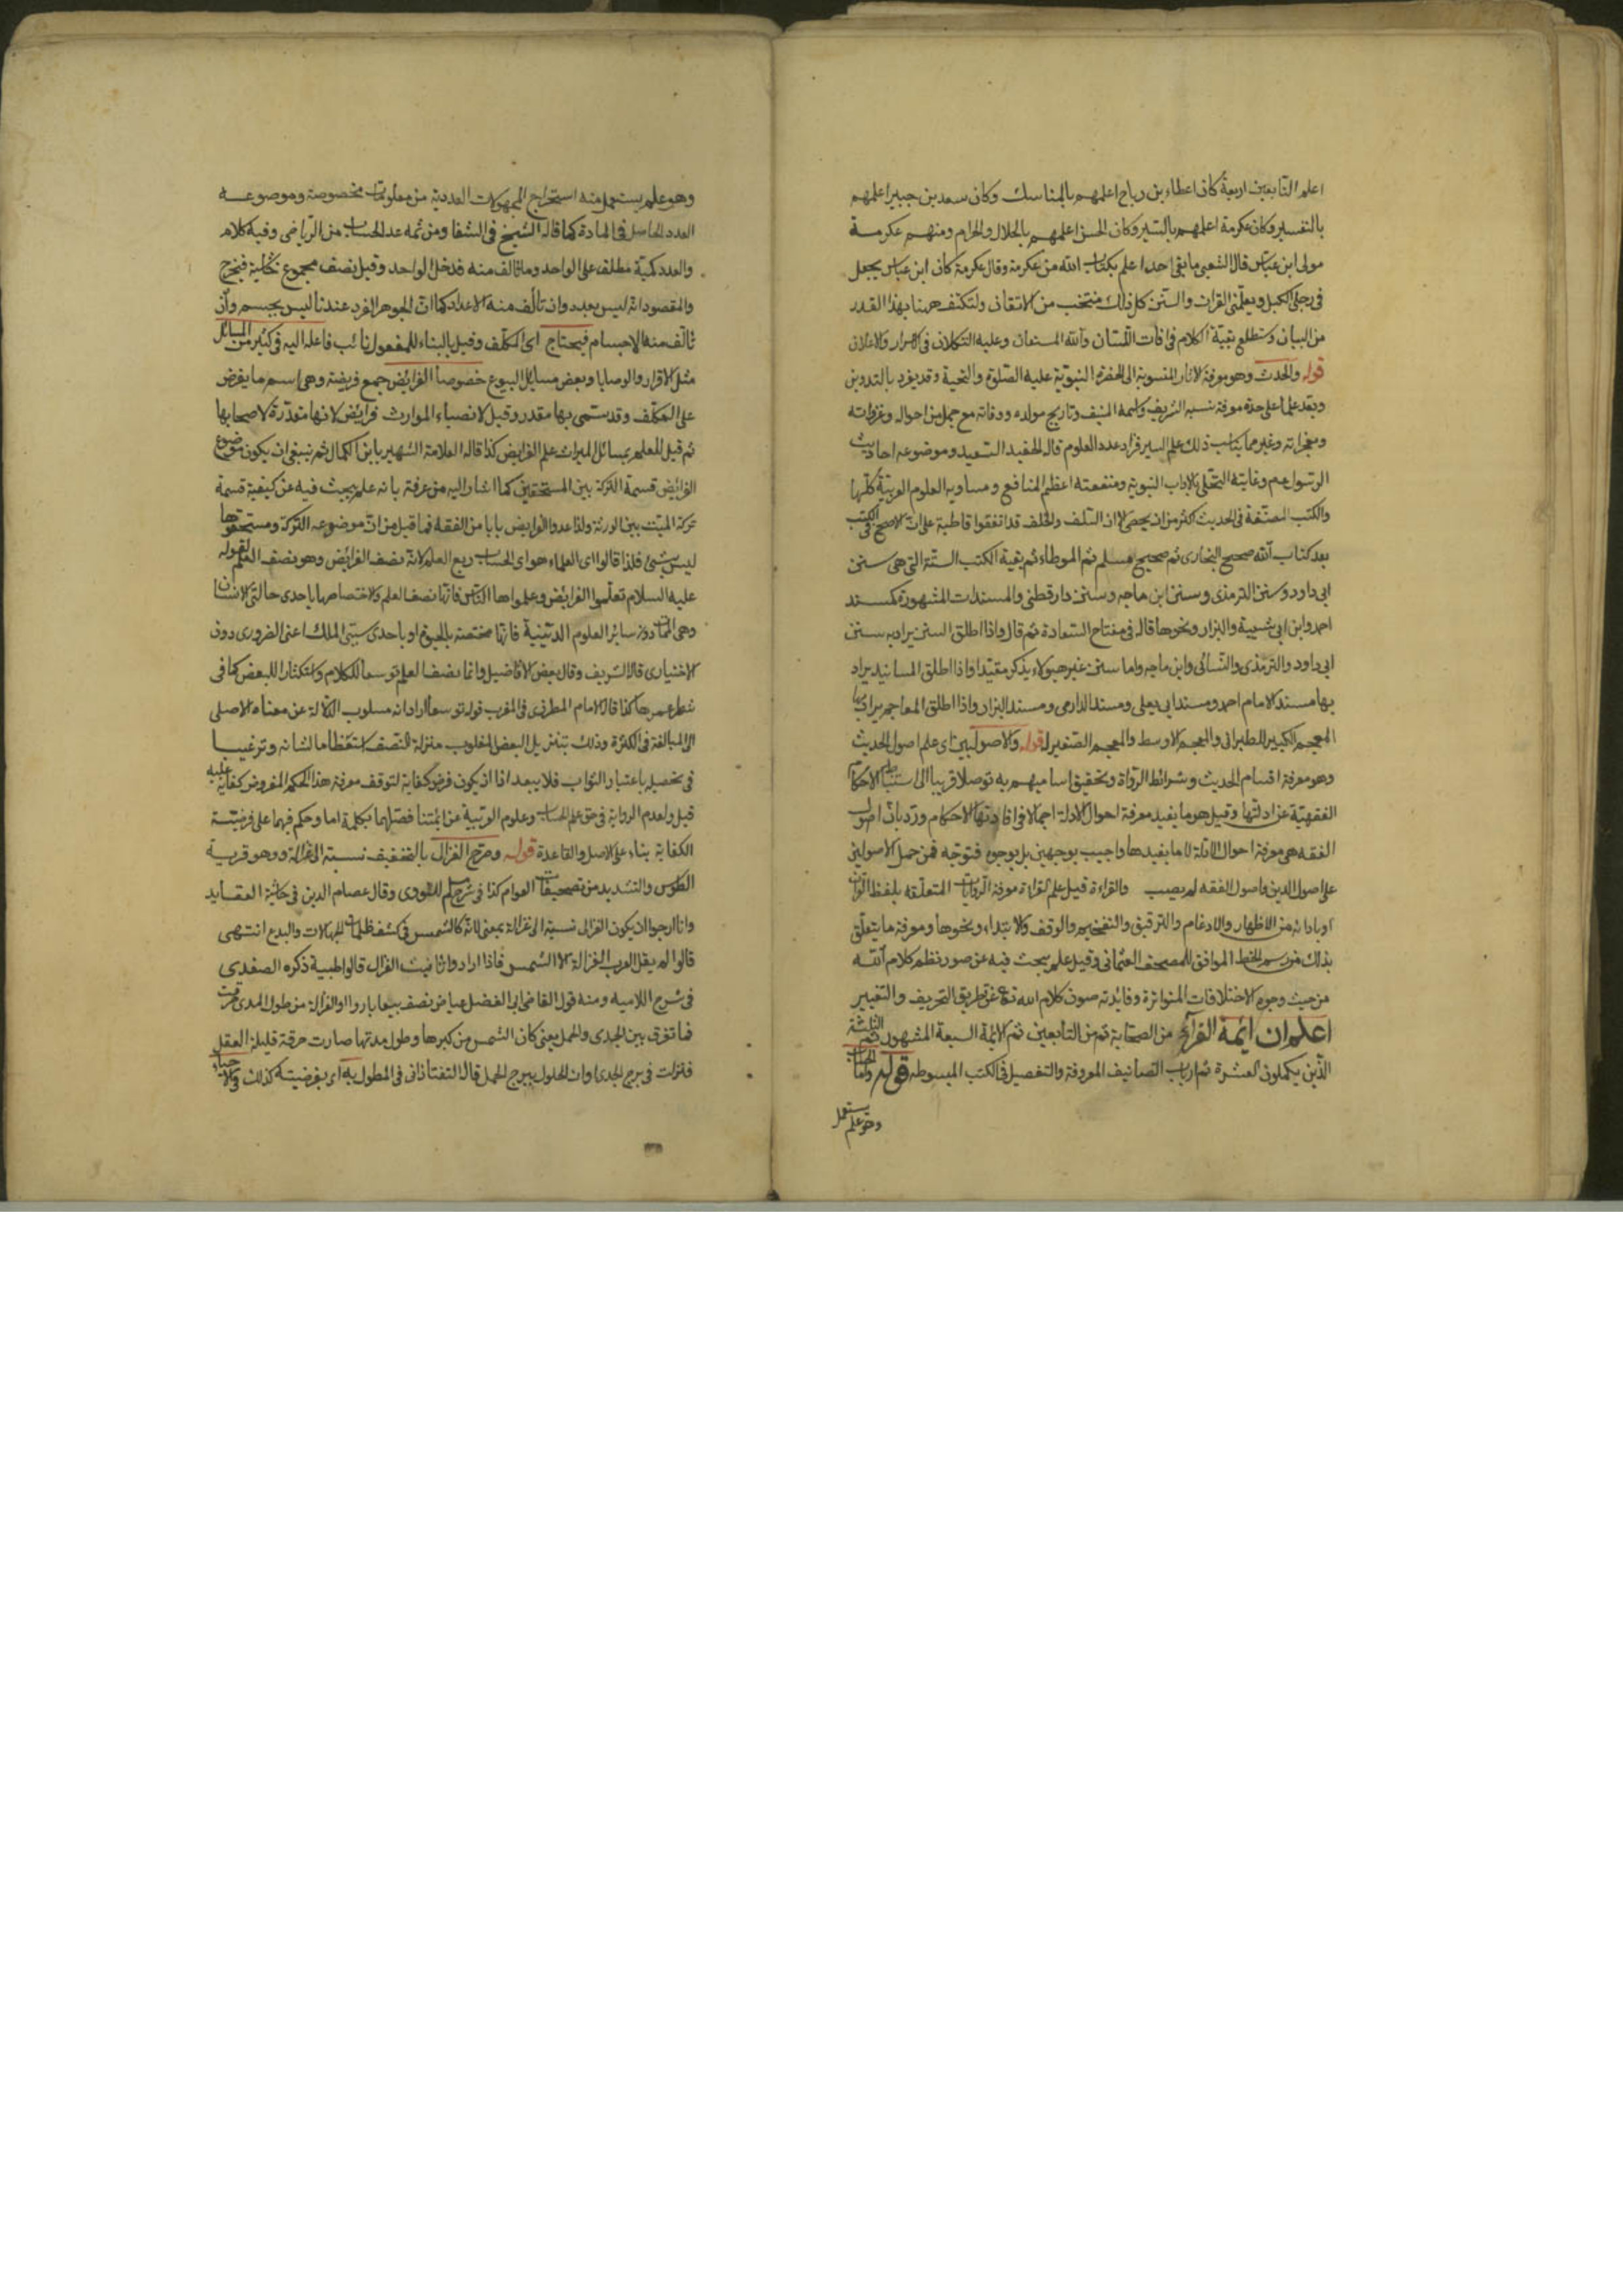 اعلم التابعين اربعة كان عطاء بن رباح اعلمهم بالمناسك وكان سعد بن جبير اعلمهم
بالتفسير وكان عكرمة اعلمهم بالسير وكان الحسن اعلمهم بالحلال والحرام ومنهم عكرمة
مولى ابن عباس قال الشعبى ما بقى احدا علم بكتاب الله من عكرمة وقال عكرمة كان ابن عباس يجعل
فى رجلى الكبل ويعلمنى القران والسنن كل ذلك منتخب من الاتقان ولنكتف ههنا بهذا القدر
من البيان وستطلع بقية الكلام فى افات اللسان والله المستعان وعليه التكلان فى الاسرار والاعلان
قوله والحدث وهو معرفة الاثار المنسوبة الى الحضرة النبوية عليه الصلوة والتحية وقد يفرد بالتدوين
ويعد علما على حدة معرفة نسبه الشريف واسمه المنيف وتاريخ مولده ووفاته مع جمل من احواله وغزواته
ومعجزاته وغير مما يناسب ذلك علم السير فزاد عدد العلوم قاله الحفيد السعيد وموضوعه احاديث
الرسول عم وغايته التحلى بالاداب النبوية ومنفعته اعظم المنافع ومساويه العلوم العربية كلها
والكتب المصنفة فى الحديث اكثر من ان يحصى الا ان السلف والخلف قد اتفقوا قاطبة على ان الاصح فى الكتب
بعد كتاب الله صحيح البخارى ثم صحيح مسلم ثم الموطاء ثم بقية الكتب الستة التى هى سنن
ابى داود وسنن الترمذى وسنن ابن ماجه وسنن دارقطنى والمسندات المشهورة كمسند
احمد وابن ابى شيبة والبزار ونحوها قاله فى مفتاح السعادة ثم قال واذا اطلق السنن يراد به سنن
ابى داود والترمذى والنسائى وابن ماجه واما سنن غير هؤلاء يذكر مقيدا واذا اطلق المسانيد يراد
بها مسند الامام احمد ومسند ابى يعلى ومسند الدارمى ومسند البزار واذا اطلق المعاجم يراد بها
المعجم الكبير للطبرانى والمعجم الاوسط والمعجم الصغير له قوله والاصوليين اى علم اصول الحديث
وهو معرفة اقسام الحديث وشرائط الرواة وتحقيق اساميهم به توصلا قريبا الى استنباط الاحكام
الفقهية عن ادلتها وقيل هو ما يفيد معرفة احوال الادلة اجمالا فى افادتها الاحكام ورد بان اصول
الفقه هى معرفة احوال الادلة لا ما يفيدها واجيب بوجهين بل بوجوه فتوجه فمن حمل الاصولين
على اصول الدين واصول الفقه لم يصب والقراءة قيل علم القراءة معرفة الروايات المتعلقة بلفظ القران
او باداته من الاظهار والادغام والترقيق والتفخيم والوقف والابتداء ونحوها ومعرفة ما يتعلق
بذلك من رسم الخط الموافق للمصحف العثمانى وقيل علم يبحث فيه عن صور نظم كلام الله
من حيث وجوه الاختلافات المتواترة وفائدته صون كلام الله تع عن تطريق التحريف والتغيير
اعلم ان ائمة القرآن من الصحابة ثم من التابعين ثم الائمة السبعة المشهور ثم الثلثة
الذين يكملون العشرة ثم ارباب التصانيف المعروفة والتفصيل فى الكتب المبسوطه قوله واما الحساب
وهو علم يستعمل
وهو علم يستعمل منه استخراج المجهولات العددية من معلومات مخصوصة وموضوعه
العدد الحاصل فى المادة كما قاله الشيخ فى الشفا ومن ثمه عد الحساب من الرياضى وفيه كلام
والعدد كمية مطلق على الواحد وما تالف منه فدخل الواحد وقيل نصف مجموع حاشيتيه فيخرج
والمقصود انه ليس بعدد وان تألف منه الاعداد كما ان الجوهر الفرد عندنا ليس بجسم وان
تألف منه الاجسام فيحتاج اى المكلف وقيل بالبناء للمفعول نائب فاعله اليه فى كثير من المسائل
مثل الاقرار والوصايا وبعض مسائل البيوع خصوصا الفرايض جمع فريضة وهى اسم ما يفرض
على المكلف وقد يسمى بها مقدر وقيل لانصباء الموارث فرايض لانها مقدرة لاصحابها
ثم قيل للعلم بمسائل الميراث علم الفرايض كذا قاله العلامة الشهير بابن الكمال ثم ينبغى ان يكون موضوع
الفرايض قسمة التركة بين المستحقين كما اشار اليه من عرفة بانه علم يبحث فيه عن كيفية قسمة
تركة الميت بين الورثة ولذا عدوا الفرايض بابا من الفقه فما قيل من ان موضوعه التركة ومستحقوها
ليس بشئ فلذا قالوا اى العلماء هو اى الحساب ربع العلم لانه نصف الفرائض وهو نصف العلم لقوله
عليه السلام تعلموا الفرايض وعلموها الناس فانها نصف العلم ولاختصاصها باحدى حالتى الانسان
وهى الممات دون سائر العلوم الدينية فانها مختصة بالحيوة او باحدى سببى الملك اعنى الضرورى دون
الاختيارى قاله الشريف وقال بعض الافاضيل وانما نصف العلم توسعا للكلام واستكثارا للبعض كما فى
شطر عمرها كذا قال الامام المطرزى فى المغرب قوله توسعا اراد انه مسلوب الدلالة عن معناه الاصلى
الى المبالغة فى الكثرة وذلك بتنزيل البعض المغلوب منزلة النصف استعظاما لشانه وترغيبا
فى تحصيله باعتبار الثواب فلا يبعد اذا ان يكون فرض كفاية لتوقف معرفة هذا الحكم المفروض كفاية عليه
قيل ولعدم الرواية فى حق علم الحساب وعلوم العربية عن ائمتنا فصلهما بكلمة اما وحكم فيهما على فرضيته
الكفاية بناء على الاصل والقاعدة قوله وصرح الغزالى بالتخفيف نسبة الى غزالة وهو قرية
الطوس والتشديد من تصحيفات العوام كذا فى شرح مسلم للنووى وقال عصام الدين فى حاشية العقايد
وانا ارجوا ان يكون الغزالى نسبة الى غزالة بمعنى لانه كالشمس فى كشف ظلمات الجهالات والبدع انتهى
قالوا لم يقل العرب الغزالة الا الشمس فاذا ارادوا تانيث الغزال قالوا ظبية ذكره الصفدى
فى شرح اللاميه ومنه قول القاضى ابى الفضل عياض نصف ربيعا باردا او الغزالة من طول المدى خرفت
فما تفرق بين الجدى والحمل يعنى كان الشمس من كبرها وطول مدتها صارت خرقة قليلة العقل
فنزلت فى برج الجدى اوان الحلول ببرج الحمل قال التفتازانى فى المطول به اى بفرضيته كذلك